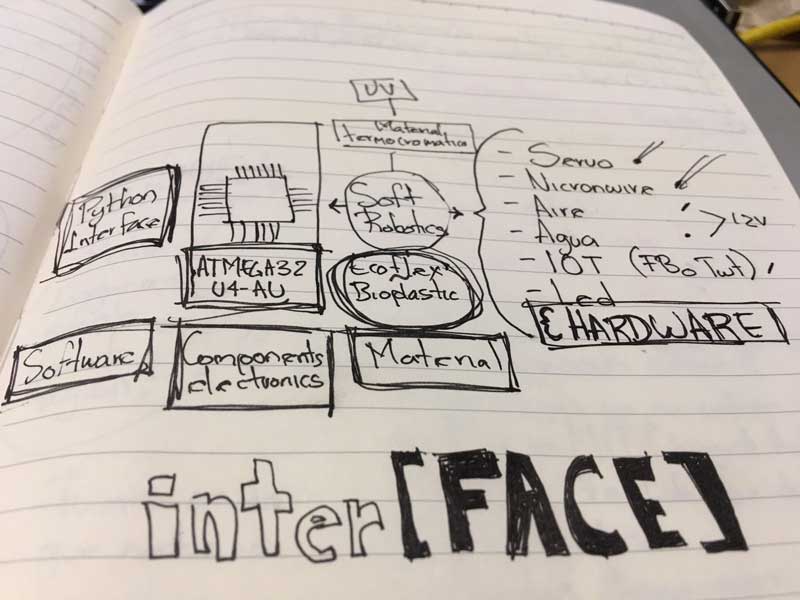 UV
Material
termocromatico
Python
Interface
ATMEGA32
U4-AU
Soft
Robotics
Ecoflex
Bioplastic
- Servo
- Nicronwire
- Aire
- Agua
12V
- IOT (FB o Twt)
- Led
{HARDWARE
Software
Components
electronics
Material
inter[FACE]